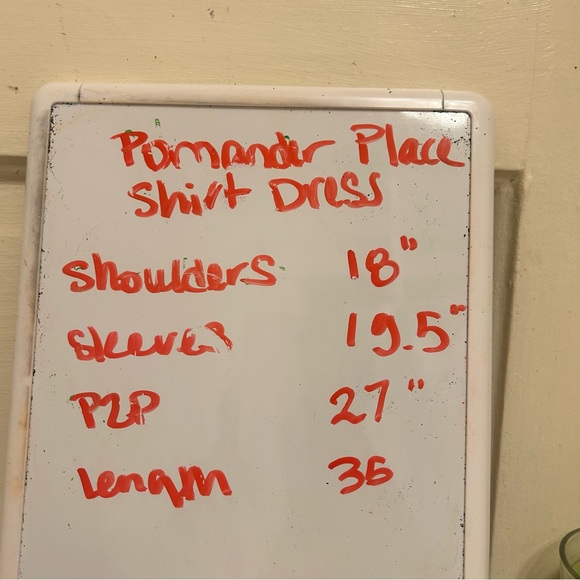 Pomander Place
Shirt Dress
Shoulders 18"
Sleeves 19.5"
P2P 27"
Length 36